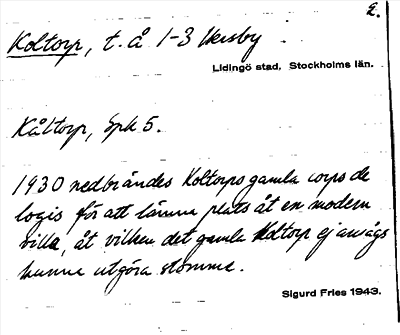 2.
Koltorp, t. å 1-3 Hersby
Lidingö stad, Stockholms län.
Kåltorp, Spk 5.
1930 nedbrändes Koltorps gamla corps de
logis för att lämna plats åt en modern
villa, åt vilken det gamla Koltorp ej ansågs
kunna utgöra stomme.
Sigurd Fries 1943.